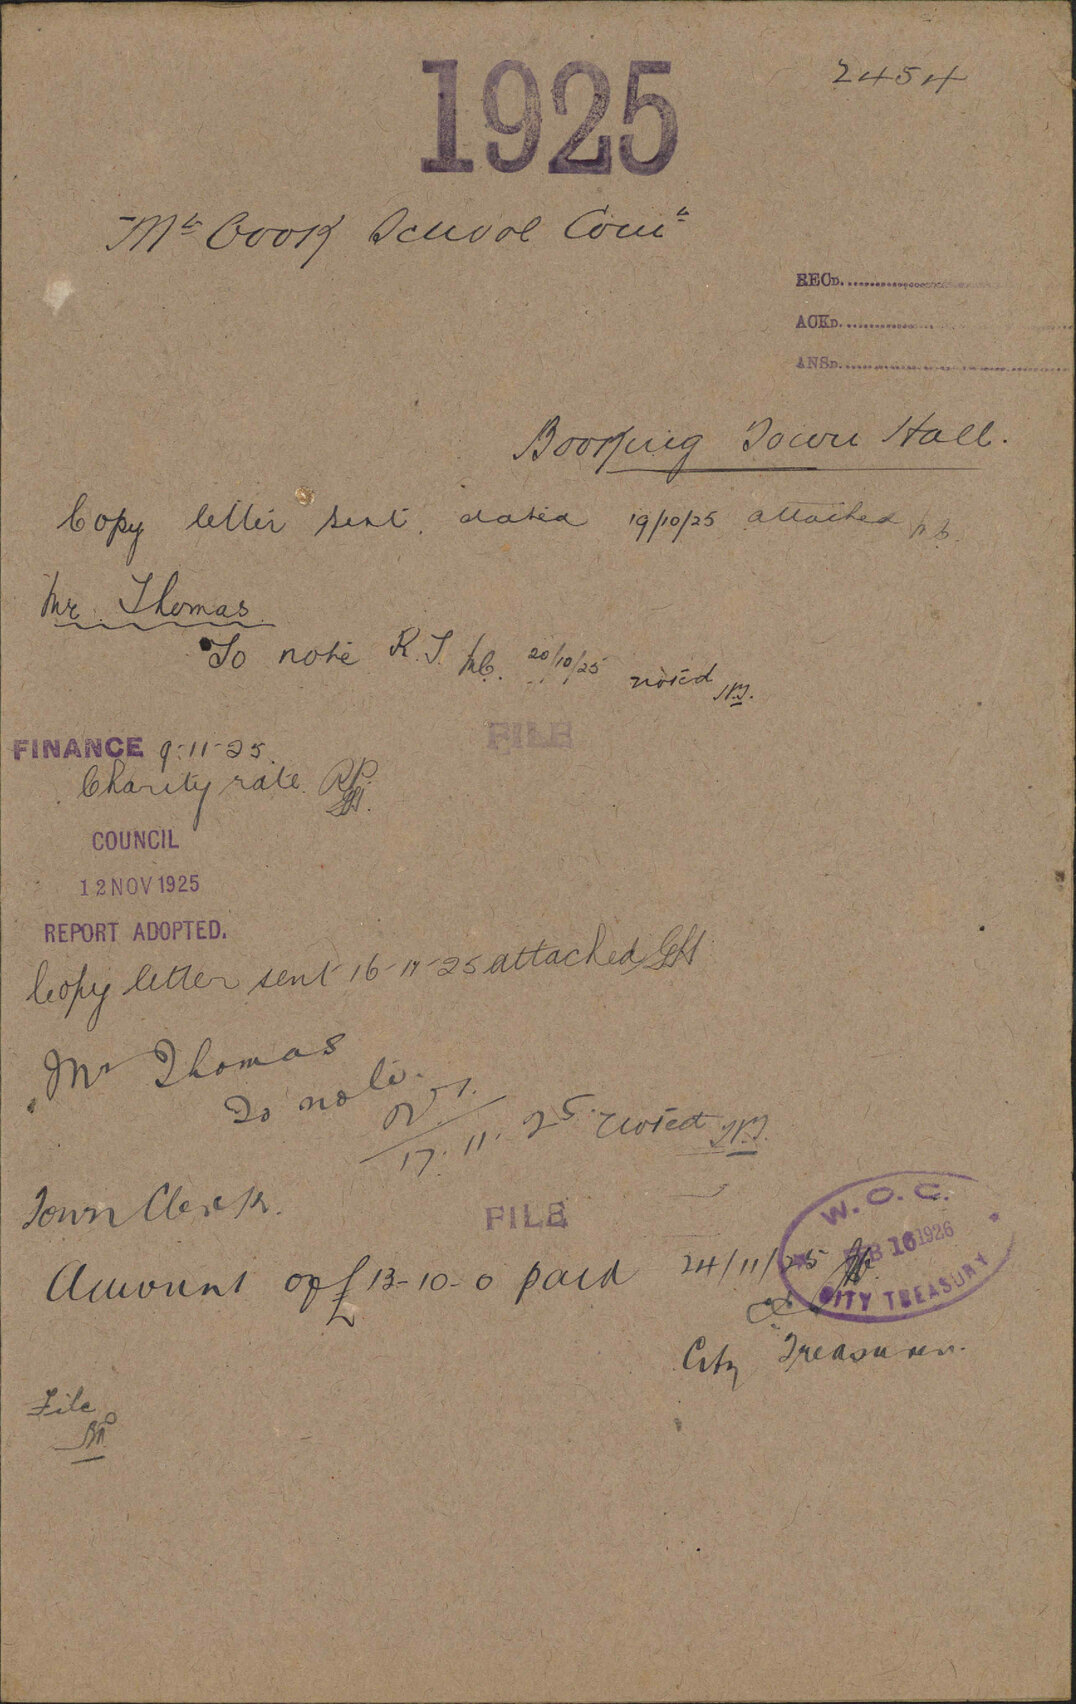 1925
2454
Mt Cook School Comt
RECD.
ACKD.
ANSD.
Booking Town Hall.
Copy letter sent dated 19/10/25 attached
Mr. Thomas
To note R.T. 20/10/25 noted
FILE
FINANCE 9-11-25.
Charity rate.
COUNCIL
12 NOV 1925
REPORT ADOPTED.
Copy letter sent 16-11-25 attached GH
Mr Thomas
To note.
17.11.25. noted
Town Clerk.
FILE
W.O.C.
FEB 16 1926
CITY TREASURY
Amount of £13-10-0 paid 24/11/25
City Treasurer.
File